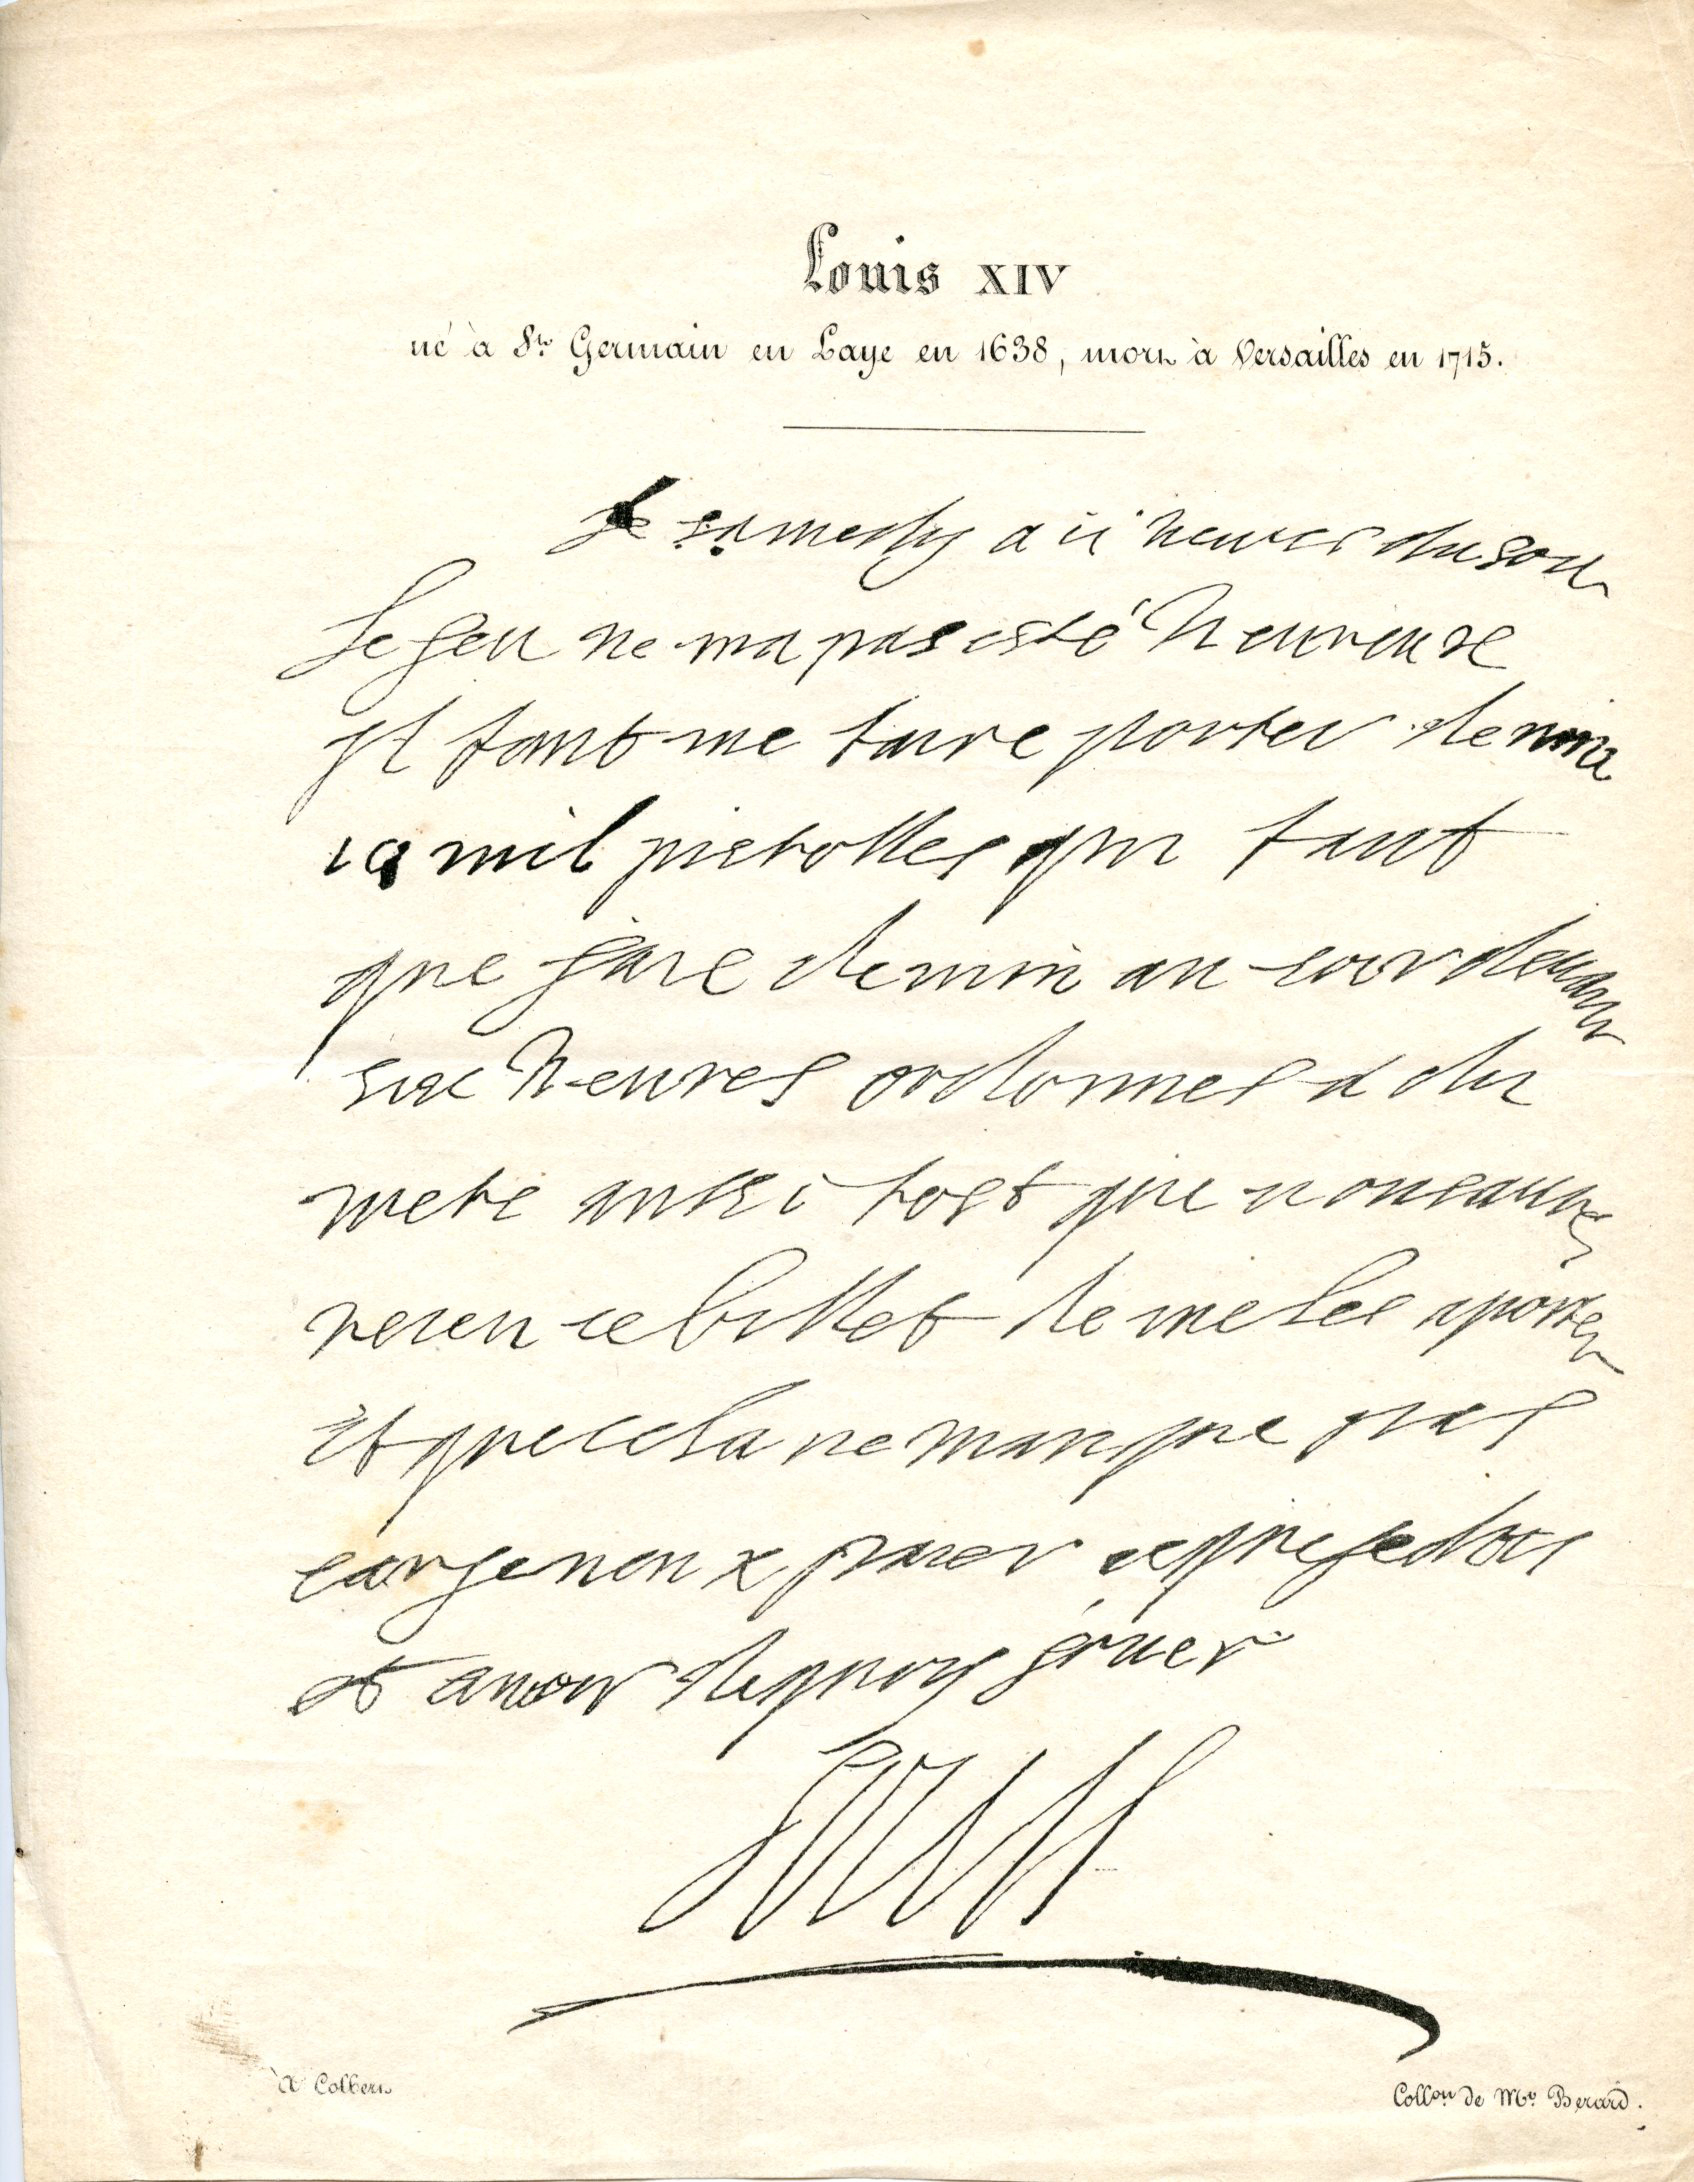 Louis XIV
né à St. Germain en Laye en 1638, mort à Versailles en 1715.
Le samedy a ii heures du soir
Le jeu ne ma pas esté heureuse
jl faut me faire porter demin
mil pistolles qui faut
que jaie demin au soir devant
sixe heures ordonnes a du
metz aussi tost que vous aures
receu ce billet de me les aporter
Et que cela ne manque pas
car je neux paier ce que je dois
et avoir de quoy jouer
Louis
à Colbert
Collon. de Mr. Berard.